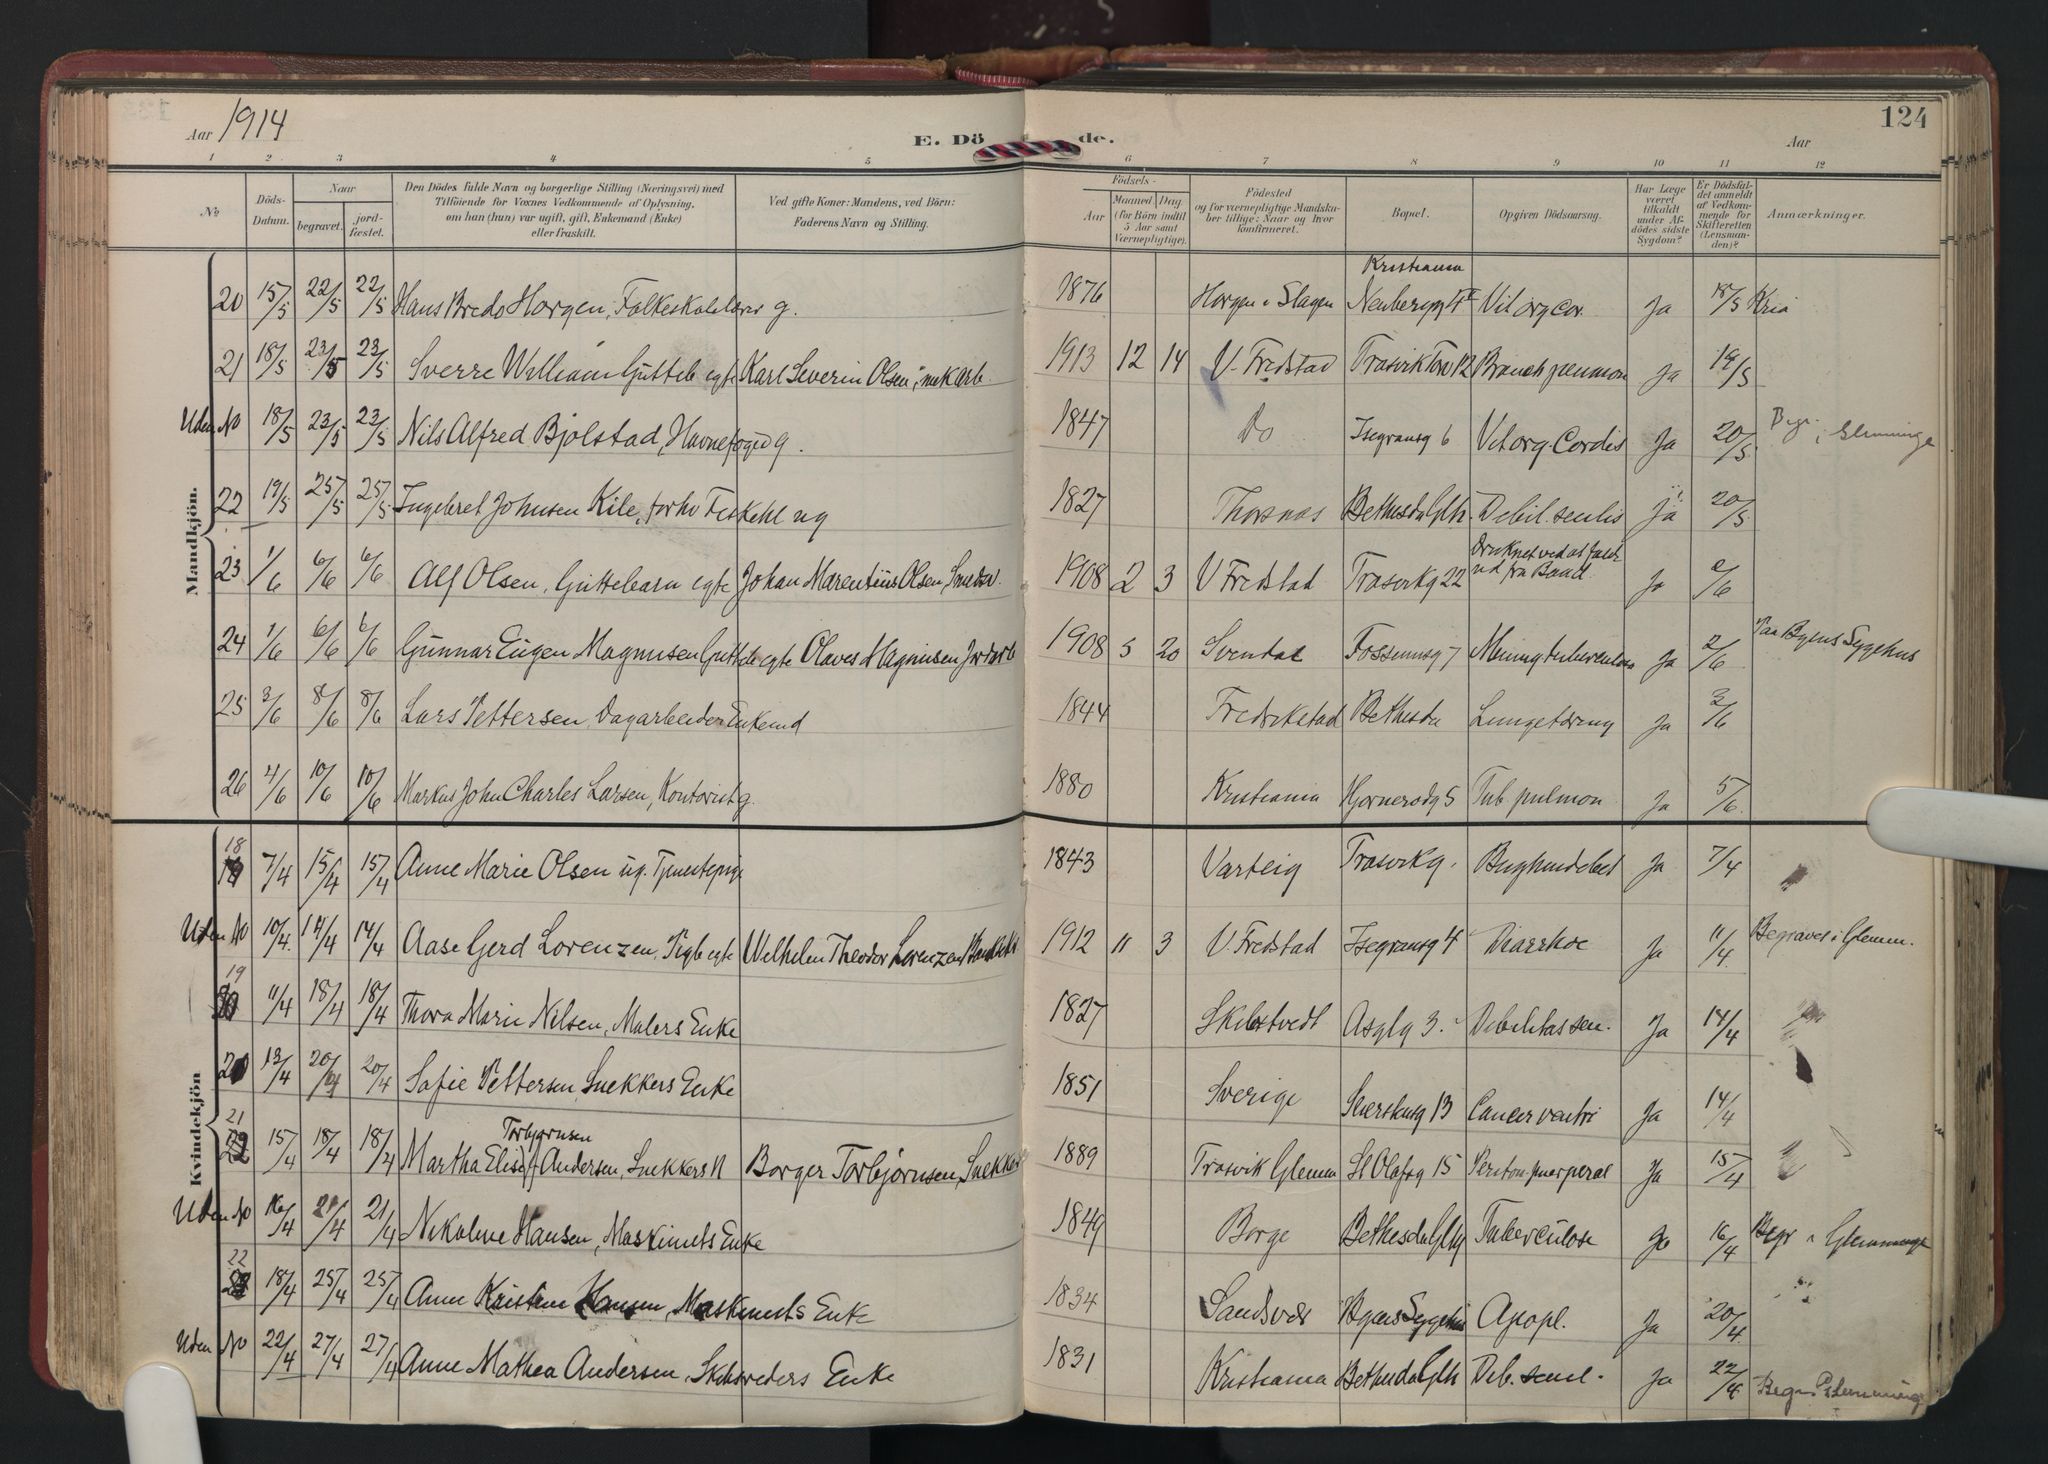 Aar 1914
E. Dö de.
124
Aar
1 2 3 4 5 6 7 8 9 10 11 12
No Döds-Datum. Naar begravet. jord-fæstet. Den Dödes fulde Navn og borgerlige Stilling (Næringsvei) med Tilföiende for Voxnes Vedkommende af Oplysning, om han (hun) var ugift, gift, Enkemand (Enke) eller fraskilt. Ved gifte Koner: Mandens, ved Börn: Faderens Navn og Stilling. Födsels- Aar Maaned Dag (for Börn indtil 5 Aar samt Værnepligtige). Födested og for værnepligtige Mandskaber tillige: Naar og hvor konfirmeret. Bopæl. Opgiven Dödsaarsag. Har Læge været tilkaldt under Afdödes sidste Sygdom? Er Dödsfaldet anmeldt af Vedkommende for Skifteretten (Lensmanden)? Anmærkninger.
Mandkjön.
20 15/5 22/5 22/5 Hans Bredo Horgen, Folkeskolelærer g. 1876 Horgen i Slagen Kristiania Neubergg 4 Vit org Cor. Ja 18/5 Kria
21 18/5 23/5 23/5 Sverre William Gutteb egte Karl Severin Olsen, mek arb. 1913 12 14 V. Fredstad Trosvik Torv 12 Bronch pneumon Ja 19/5
Uden No 18/5 23/5 23/5 Nils Alfred Bjølstad, Havnefoged g. 1847 Do Isegransg 6 Vit org. Cordis Ja 20/5 Begr. i Glemminge
22 19/5 25/5 25/5 Ingebret Johnsen Kile, forhv Fiskehl ug 1827 Thorsnæs Bethesda Glh. Debil. senilis Ja 20/5
23 1/6 6/6 6/6 Alf Olsen, Guttebarn egte Johan Marentius Olsen, 1908 2 3 V Fredstad Trosvikg 22 Druknet ved at falde ud fra Baad. Ja 2/6
24 1/6 6/6 6/6 Gunnar Eugen Magnusen Gutteb egte Olaves Magnusen Jordarb 1908 5 20 7 Mening tuberculos Ja 2/6 Paa Byens Sygehus
25 3/6 8/6 8/6 Lars Pettersen, Dagarbeider Enkemd 1844 Fredrikstad Bethesda Lungetæring Ja 3/6
26 4/6 10/6 10/6 Markus John Charles Larsen, Kontorist g. 1880 Kristiania Hjørnerødg 5 Tub pulmon Ja 5/6.
Kvindekjön
18 7/4 15/4 15/4 Anne Marie Olsen ug. Tjenestepige 1843 Varteig Trosvikg. Ja 7/4
Uden No 10/4. 14/4 14/4 Aase Gerd Lorenzen, Pigb egte Wilhelm Theodor Lorenzen 1912 11 3 V. Fredstad Isegransg 4 Diarrhoe Ja 11/4. Begravet i Glemm.
19 11/4 18/4 18/4 Thora Marie Nilsen, Malers Enke 1827 Skibtvedt Asylg 3. Debilitas sen. Ja 14/4
20 13/4 20/4 20/4 Sofie Pettersen, Snekkers Enke 1851 Sverige 13 Cancer ventri Ja 14/4
21 15/4 18/4 18/4 Martha Elise Torbjørnsen f Andersen, Snekkers H Borger Torbjørnsen, Snekker 1889 Trosvik Glemm St Olafsg 15 Periton. puerperal Ja 15/4
Uden No 16/4 21/4 21/4 Nikoline Hansen, Maskinists Enke 1849 Borge Bethesda Glhj Tuberculose Ja 16/4 Begr i Glemminge
22 18/4 25/4 25/4 Anne Kristine Hansen, Maskinists Enke 1834 Sandsvær Byens Sygehus Apopl. Ja 20/4.
Uden No 22/4 27/4 27/4 Anne Mathea Andersen, Skibsreders Enke 1831 Kristiania Bethesda Glh Deb. senil. Ja 22/4 Begr. i Glemminge